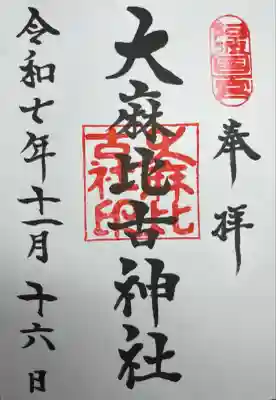 奉拝
大麻比古神社
大麻比
古社印
令和七年十一月十六日